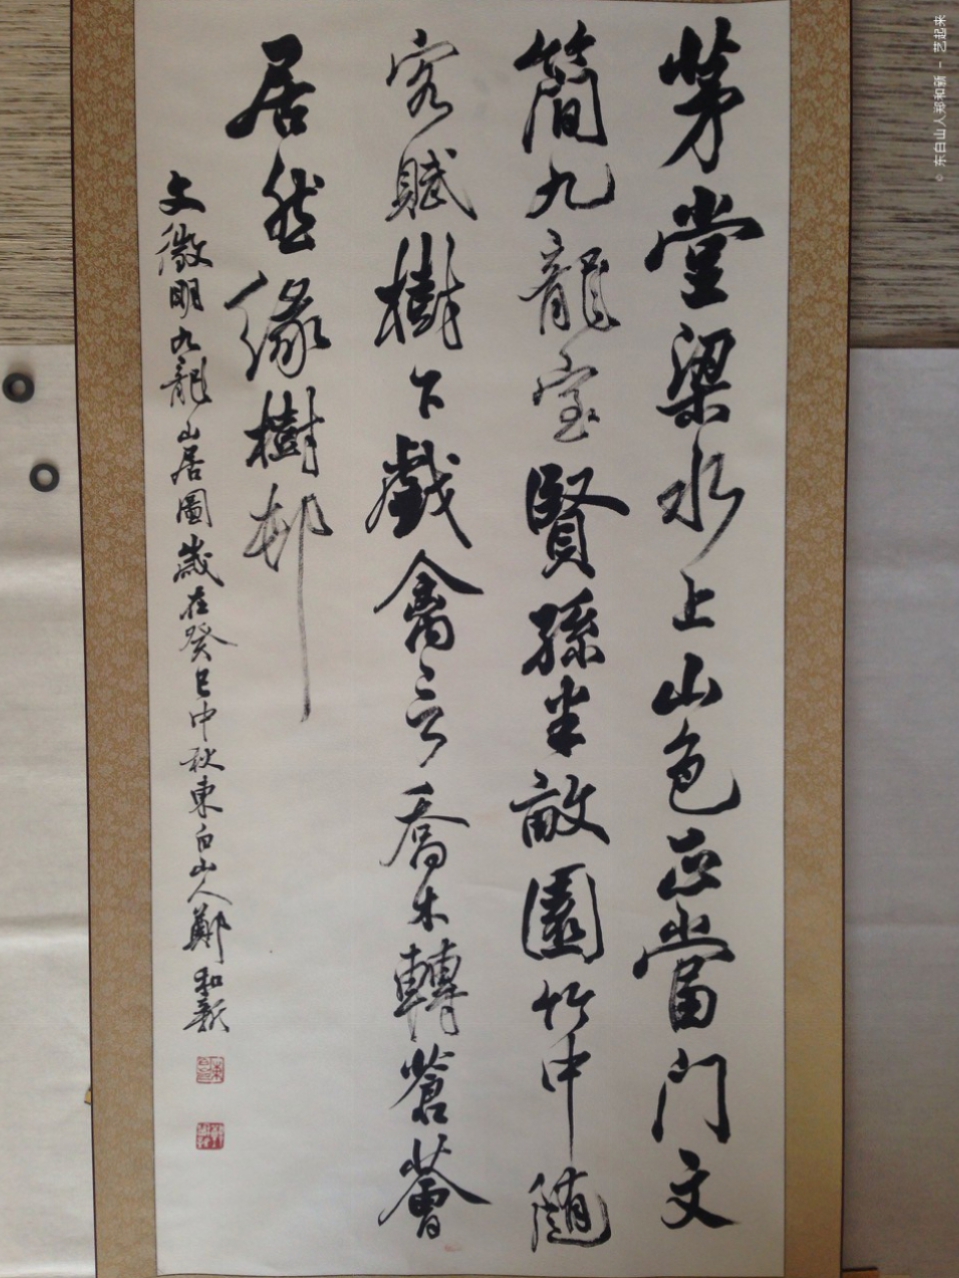 茅堂梁水上山色正當門文
簡九龍室賢孫半畝園竹中隨
客賦樹下戲禽言喬木轉蒼薈
居然緣樹邨
文徵明九龍山居圖歲在癸巳中秋東白山人鄭和新
东白山人郑和新 - 艺起来